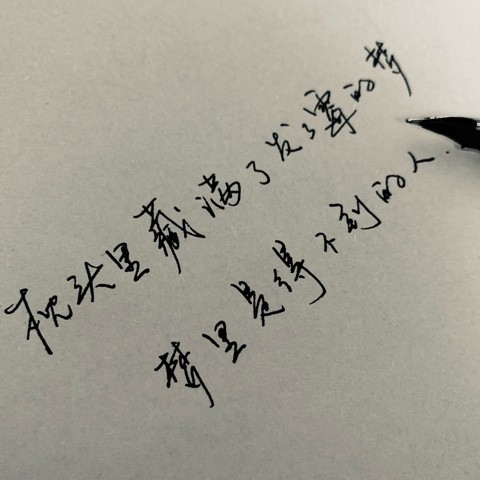 枕头里藏满了发了霉的梦
梦里是得不到的人.